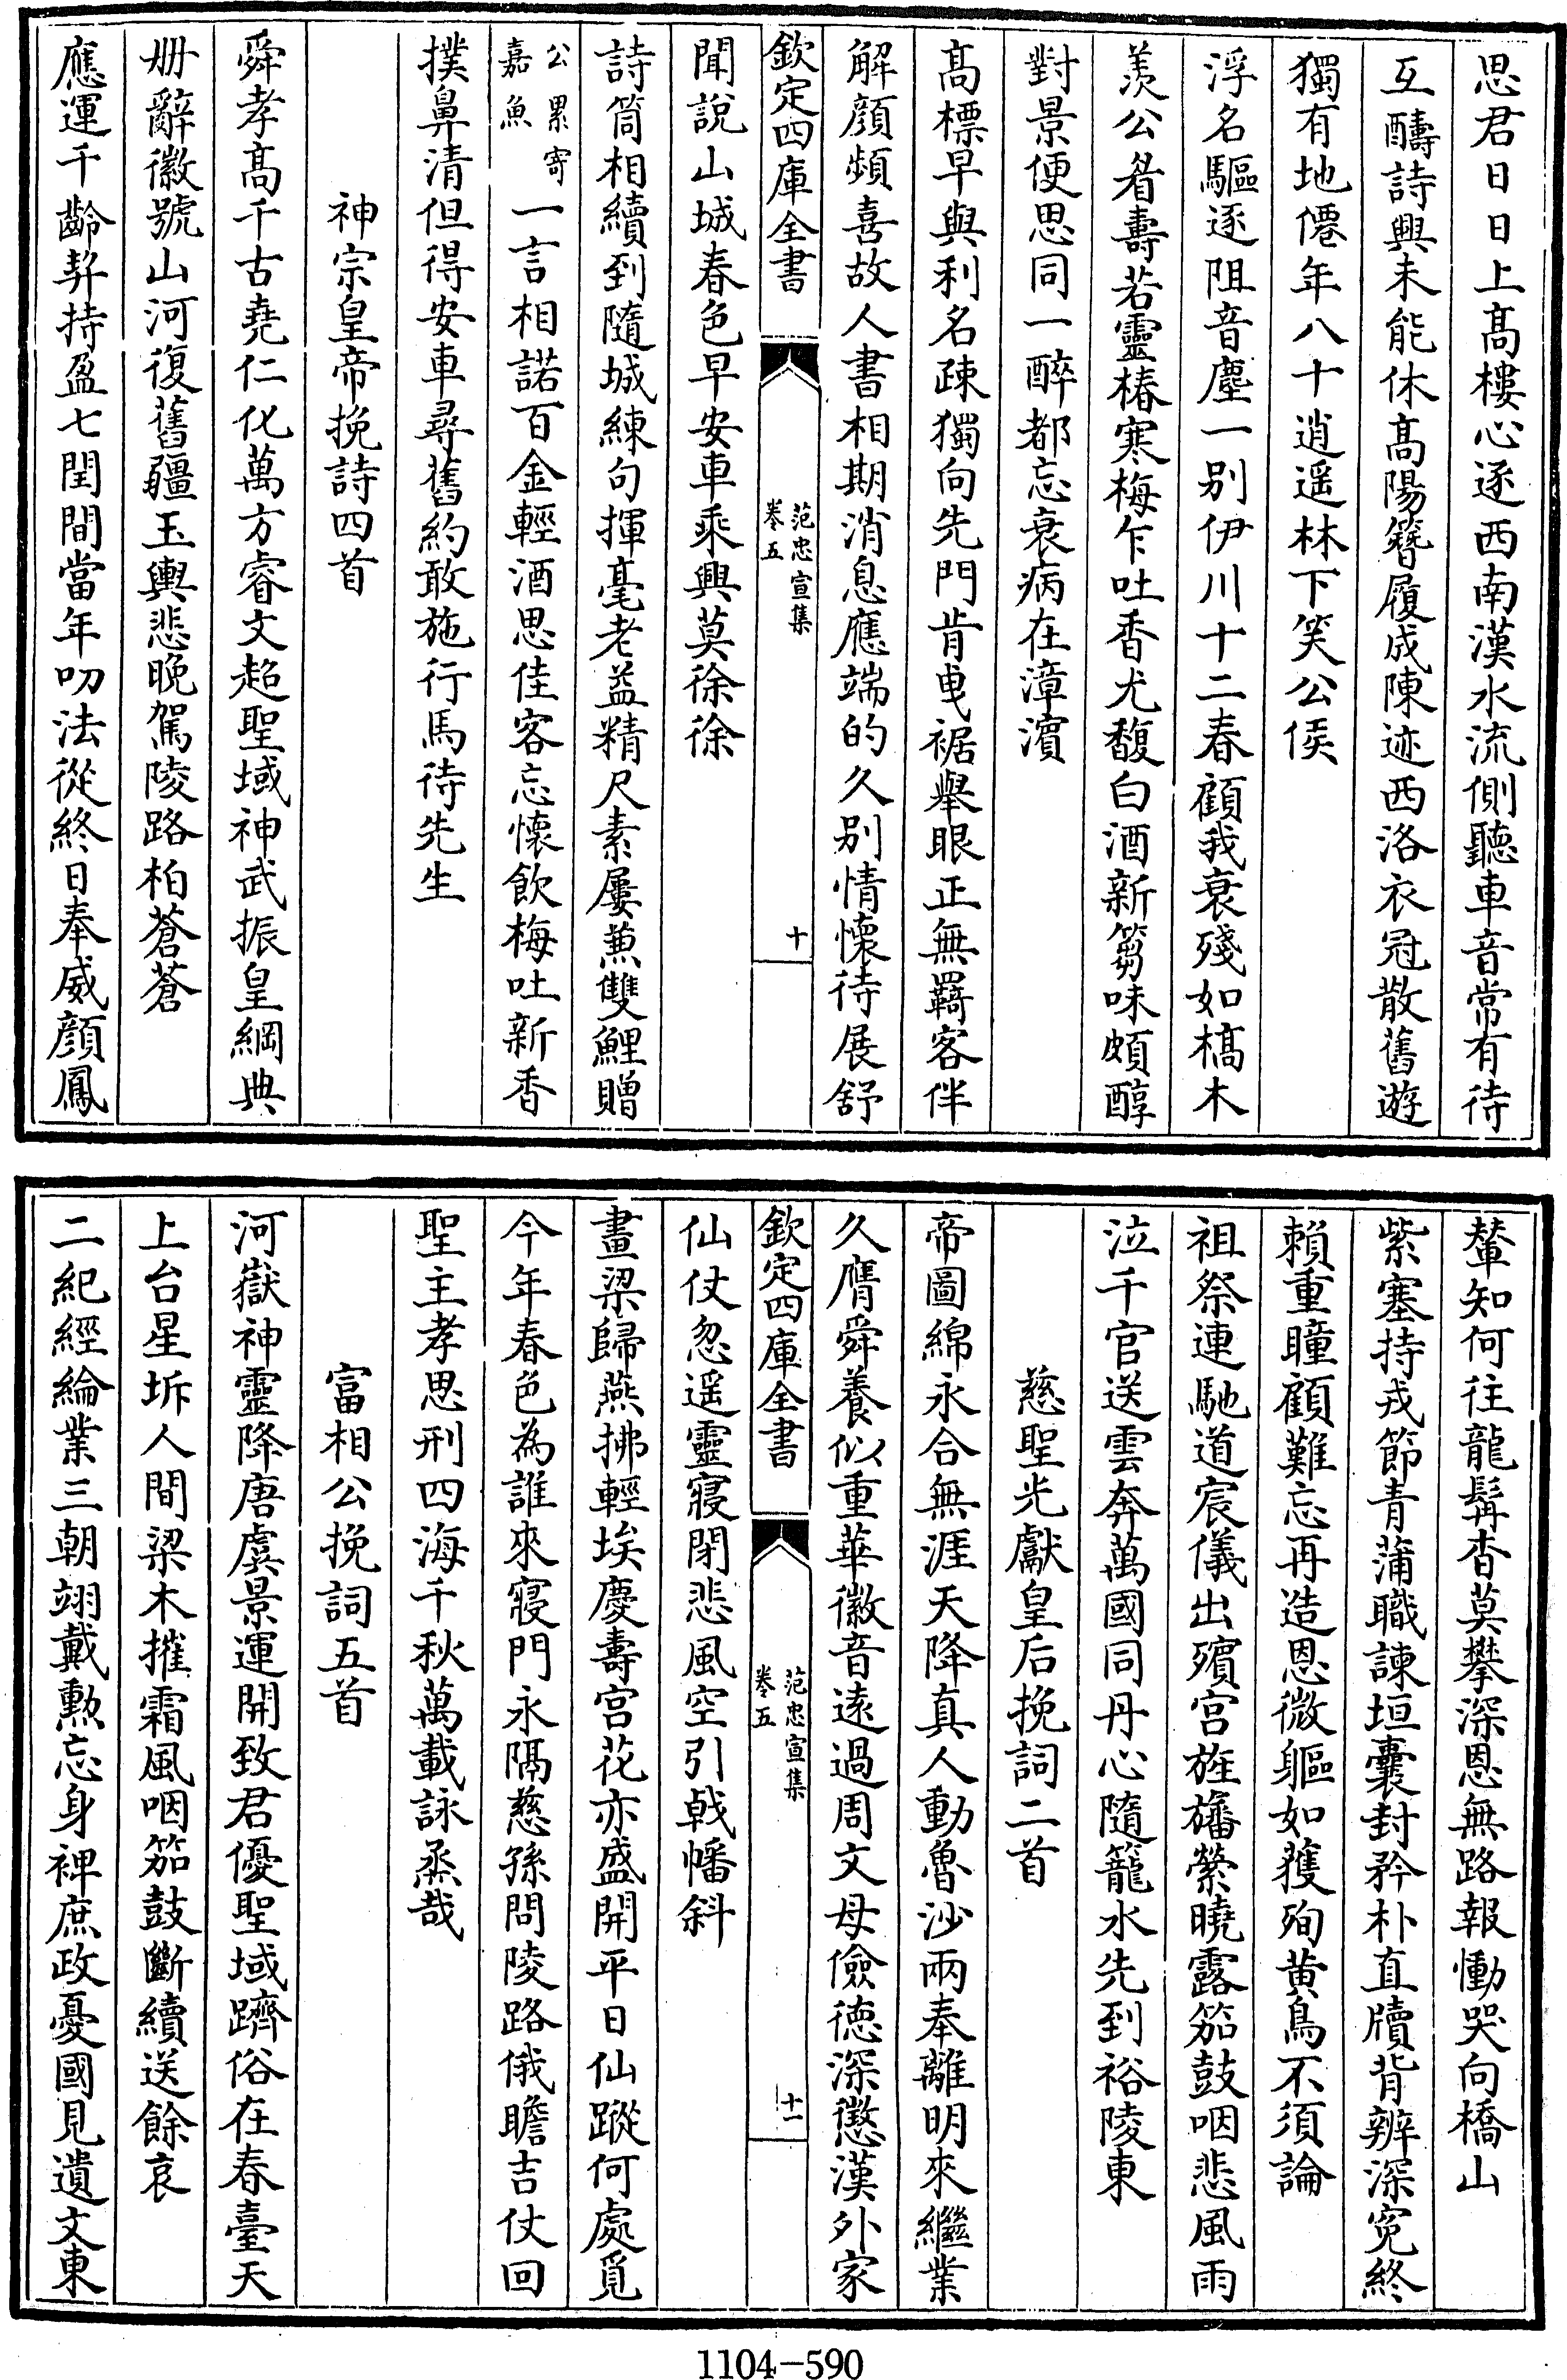 思君日日上髙樓心逐西南漢水流側聽車音常有待
互酬詩興未能休髙陽簪履成陳迹西洛衣冠散舊遊
獨有地僊年八十逍遥林下笑公侯
浮名驅逐阻音塵一别伊川十二春顧我衰殘如槁木
羨公耆壽若靈椿寒梅乍吐香尤馥白酒新篘味頗醇
對景便思同一醉都忘衰病在漳濱
髙標早與利名疎獨向先門肯曵裾舉眼正無羇客伴
解顔頻喜故人書相期消息應端的久别情懷待展舒
欽定四庫全書
范忠宣集
卷五
十
聞說山城春色早安車乘興莫徐徐
詩筒相續到隨城練句揮毫老益精尺素屢兼雙鯉贈
公累寄
嘉魚
一言相諾百金輕酒思佳客忘懷飲梅吐新香
撲鼻清但得安車尋舊約敢施行馬待先生
神宗皇帝挽詩四首
舜孝髙千古堯仁化萬方睿文超聖域神武振皇綱典
册辭徽號山河復舊疆玉輿悲晚駕陵路柏蒼蒼
應運千齡契持盈七閏間當年叨法從終日奉威顔鳳
輦知何往龍髯杳莫攀深恩無路報慟哭向橋山
紫塞持戎節青蒲職諫垣囊封矜朴直牘背辨深寃終
賴重瞳顧難忘再造恩微軀如獲殉黄鳥不須論
祖祭連馳道宸儀出殯宫旌旛縈曉露笳鼓咽悲風雨
泣千官送雲奔萬國同丹心隨籠水先到裕陵東
慈聖光獻皇后挽詞二首
帝圖綿永合無涯天降真人動魯沙兩奉離明來繼業
久膺舜養似重華徽音遠過周文母儉徳深懲漢外家
欽定四庫全書
范忠宣集
卷五
十一
仙仗忽遥靈寢閉悲風空引戟幡斜
畫梁歸燕拂輕埃慶壽宫花亦盛開平日仙蹤何處覓
今年春色為誰來寢門永隔慈孫問陵路俄瞻吉仗回
聖主孝思刑四海千秋萬載詠烝哉
富相公挽詞五首
河嶽神靈降唐虞景運開致君優聖域躋俗在春臺天
上台星坼人間梁木摧霜風咽笳鼓斷續送餘哀
二紀經綸業三朝翊戴勲忘身裨庶政憂國見遺文東
1104-590